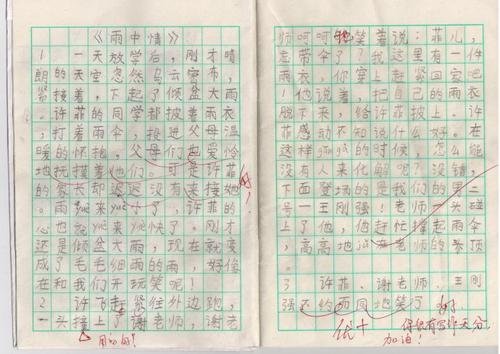 《雨中情》
1 一天放学后，刚才晴
朗的天空忽然乌云密布，
紧接着，下起了倾盆大雨
。许菲的同学都披着雨衣
，打着雨伞，投进父母温
暖的怀抱，父母们起爱怜
地抚摸着他们。可是许菲
的家长却迟迟没有来接她
。雨yuè来yuè小了，许菲的
心也yuè来yuè快了。刚才
还是倾盆大雨，现在就变
成了毛毛细雨的雨，好像
在和我们开玩笑呢！
2 许飞赶紧往外边跑，
一头撞上了谢老师，谢老
用的好！
师呵呵地笑着说：菲儿，
忘带伞了？我这里有一件
雨衣，你穿上赶紧回家吧
！他说着，把自己的雨衣
脱下来，给许菲披上。许
菲感动不知说什么好。在
这样的时候，怎么能
没有人来化解呢？没错，
下面登场的是我们的男二
号—王刚强！老师一头碰
上了他，他赶忙撑起雨伞
，高高地老师的头顶
。
3 许菲、谢老师、王刚
强不约而同地笑了
好！
优+
你很有写作天分！
加油！